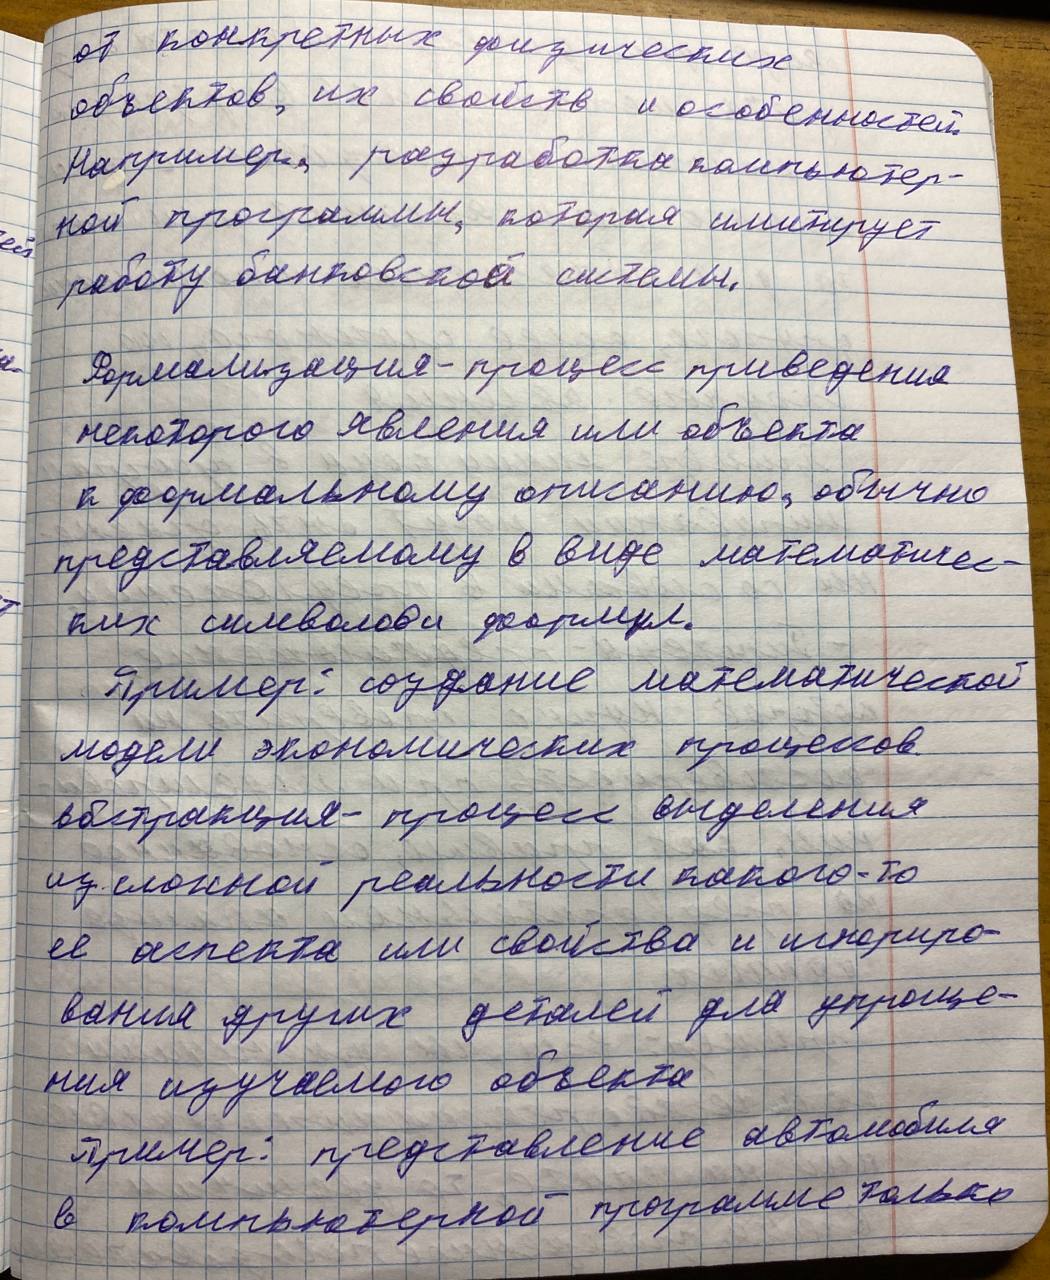 от конкретных физических
объектов, их свойств и особенностей.
Например, разработка компьютер-
ной программы, которая имитирует
работу банковской системы.
Формализация - процесс приведения
некоторого явления или объекта
к формальному описанию, обычно
представляемому в виде математичес-
ких символов и формул.
Пример: создание математической
модели экономических процессов
Абстракция - процесс выделения
из сложной реальности какого-то
ее аспекта или свойства и игнориро-
вания других деталей для упроще-
ния изучаемого объекта
Пример: представление автомобиля
в компьютерной программе только